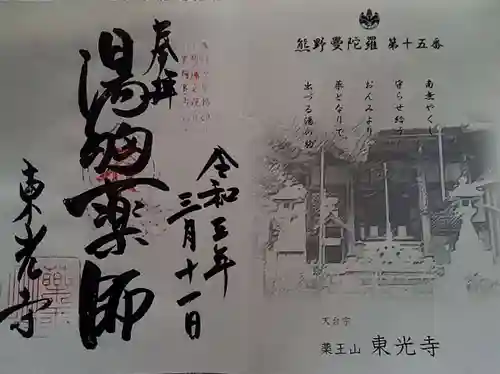 熊野曼陀羅 第十五番
南無やくし
守らせ給う
おんみより
薬となりて
出づる湯の物
天台宗
薬王山 東光寺
奉拝
湯胸薬師
令和三年
三月十一日
東光寺